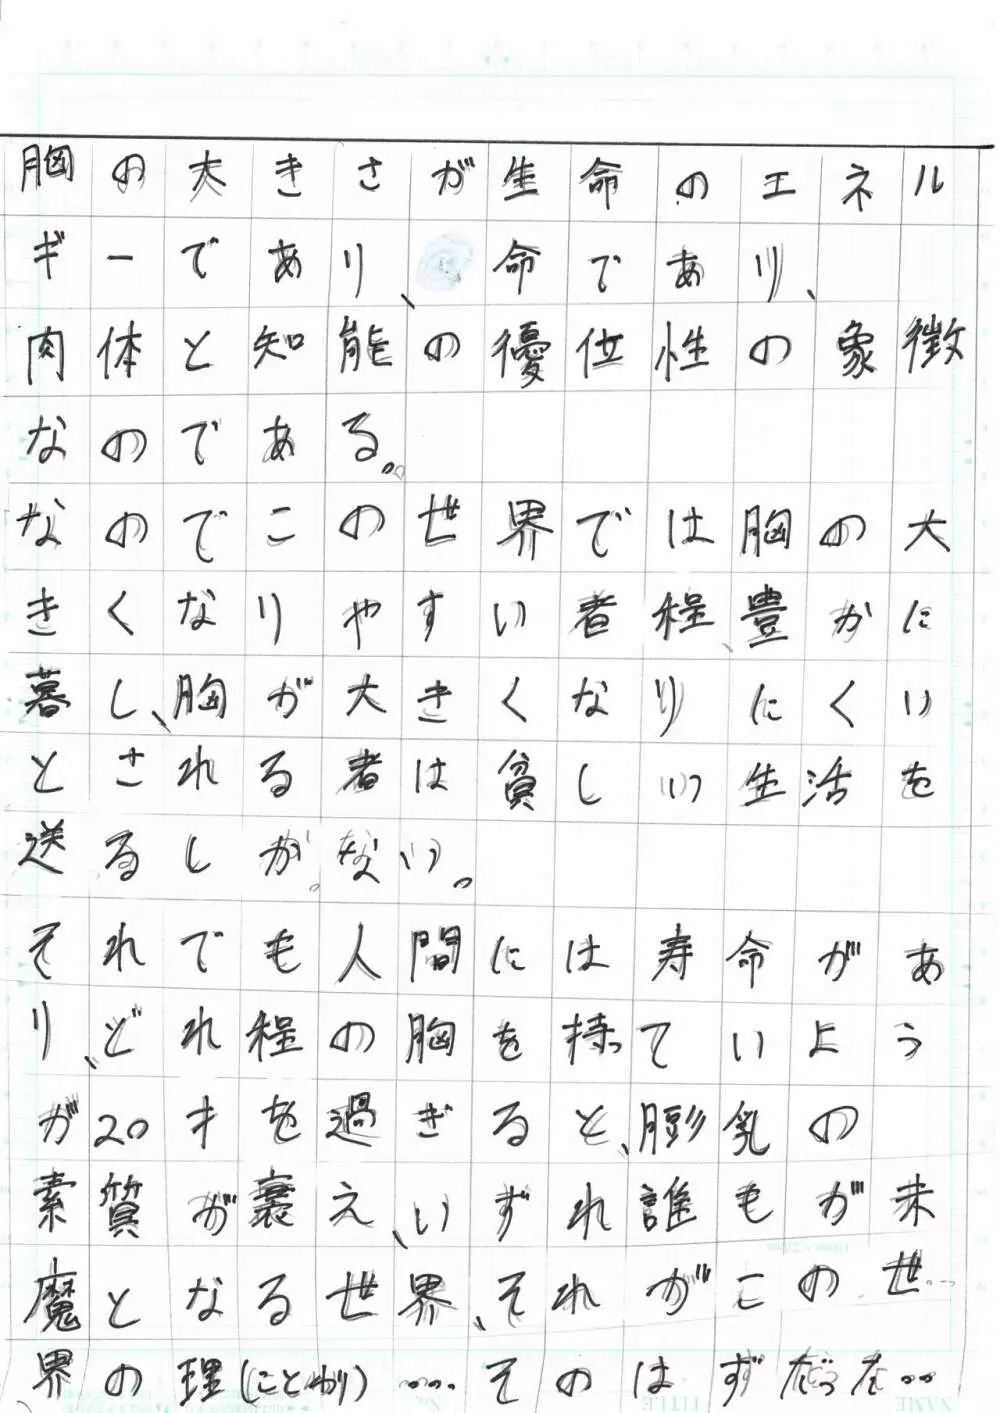 胸の大きさが生命のエネル
ギーであり、命であり、
肉体と知能の優位性の象徴
なのである。
なのでこの世界では胸の大
きくなりやすい者程、豊かに
暮し、胸が大きくなりにくい
とされる者は貧しい生活を
送るしかない。
それでも人間には寿命があ
り、どれ程の胸を持っていよう
が20才を過ぎると、膨乳の
素質が衰え、いずれ誰もが未
魔となる世界、それがこの世
界の理(ことわり)……そのはずだった…